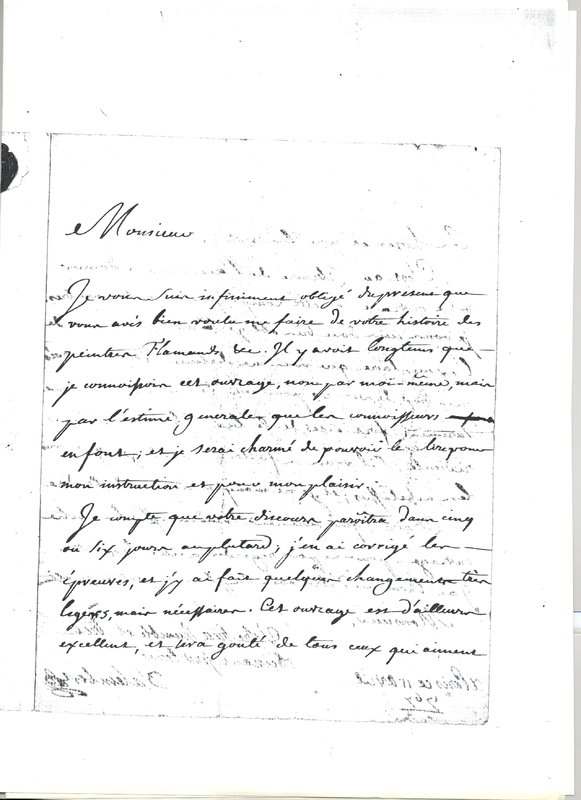 Monsieur
Je vous suis infiniment obligé du present que
vous avés bien voulu me faire de votre histoire des
peintres Flamands &c. Il y avoit longtems que
je connoissois cet ouvrage, non par moi-meme, mais
par l'estime generale que les connoisseurs
en font; et je serai charmé de pouvoir le lire pour
mon instruction et pour mon plaisir.
Je compte que votre discours paroîtra dans cinq
ou six jours au plutard; j'en ai corrigé les
épreuves, et j'y ai fait quelques changements très
legers, mais nécessaires. Cet ouvrage est d'ailleurs
excellent, et sera gouté de tous ceux qui aiment